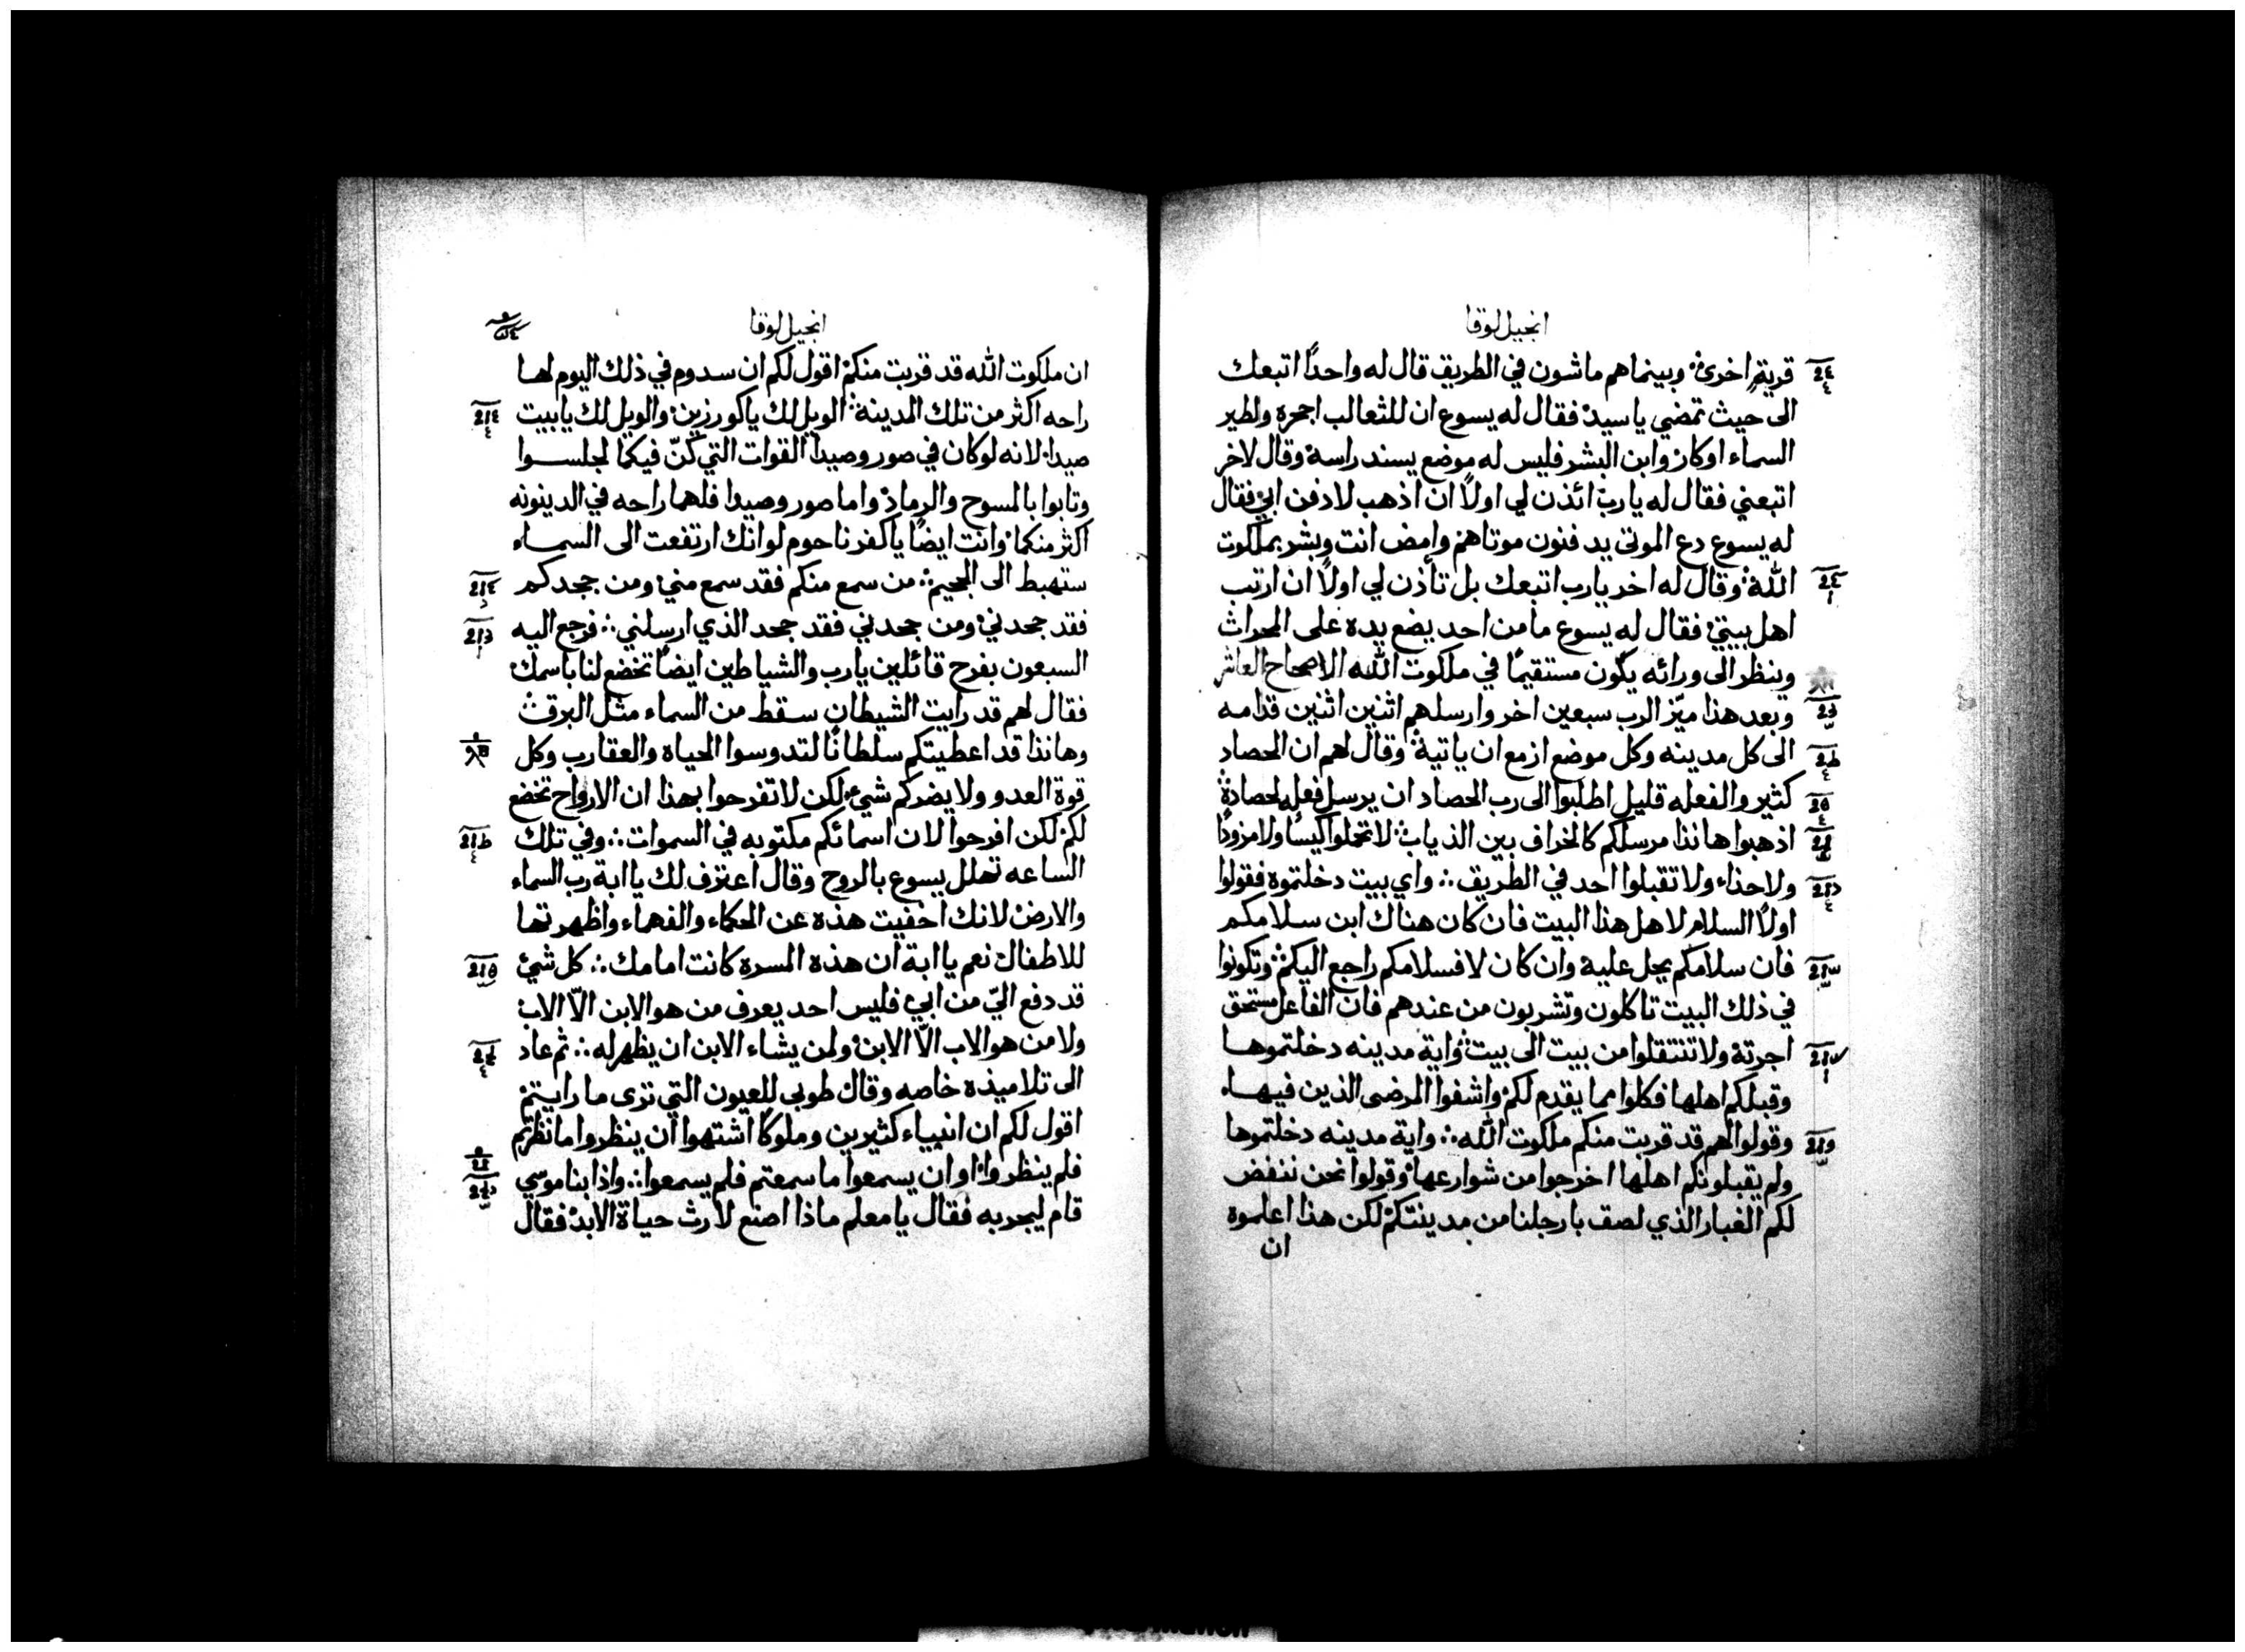 انجيل لوقا
قرية اخرى ۞ وبينما هم ماشون في الطريق قال له واحدًا اتبعك
الى حيث تمضي يا سيد فقال له يسوع ان للثعالب اجحرة ولطير
السماء اوكار وابن البشر فليس له موضع يسند راسة وقال لاخر
اتبعني فقال له يارب ائذن لي اولاً ان اذهب لادفن ابي فقال
له يسوع دع الموتى يدفنون موتاهم وامض انت وبشر بملكوت
الله وقال له اخر يارب اتبعك بل تأذن لي اولاً ان ارتب
اهل بيتي فقال له يسوع ما من احد يضع يده على المحراث
وينظر الى ورائه يكون مستقيمًا في ملكوت الله الاصحاح العاشر
وبعد هذا ميّز الرب سبعين اخر وارسلهم اثنين اثنين قدامه
الى كل مدينه وكل موضع ازمع ان ياتية وقال لهم ان الحصاد
كثير والفعله قليل اطلبوا الى رب الحصاد ان يرسل فعله لحصادة
اذهبوا هانذا مرسلكم كالخراف بين الذياب لا تحملوا كيسًا ولا مزودًا
ولا حذاء ولا تقبلوا احد في الطريق ∴ واي بيت دخلتموه فقولوا
اولاً السلام لاهل هذا البيت فان كان هناك ابن سلامكم
فان سلامكم يحل علية وان كان لا فسلامكم راجع اليكم وتكونوا
في ذلك البيت تاكلون وتشربون من عندهم فان الفاعل مستحق
اجرتة ولا تنتقلوا من بيت الى بيت واية مدينه دخلتموها
وقبلكم اهلها فكلوا مما يقدم لكم واشفوا المرضى الذين فيهاء
وقولوا لهم قد قربت منكم ملكوت الله ∴ واية مدينه دخلتموها
ولم يقبلونكم اهلها اخرجوا من شوارعها وقولوا نحن ننفض
لكم الغبار الذي لصق بارجلنا من مدينتكم لكن هذا اعلموه
ان
انجيل لوقا
ان ملكوت الله قد قربت منكم اقول لكم ان سدوم في ذلك اليوم لها
راحه اكثر من تلك المدينة الويل لك يا كورزين والويل لك يا بيت
صيدا لانه لو كان في صور وصيدا القوات التي كنّ فيكما لجلسوا
وتابوا بالمسوح والرماد واما صور وصيدا فلهما راحه في الدينونه
اكثر منكما وانت ايضًا يا كفرناحوم لو انك ارتفعت الى السماء
ستهبط الى الجحيم ∴ من سمع منكم فقد سمع مني ومن جحدكم
فقد جحدني ومن جحدني فقد جحد الذي ارسلني ∴ فرجع اليه
السبعون بفرح قائلين يارب والشياطين ايضًا تخضع لنا باسمك
فقال لهم قد رايت الشيطان سقط من السماء مثل البرق
وهانذا قد اعطيتكم سلطانًا لتدوسوا الحياه والعقارب وكل
قوة العدو ولا يضركم شيء لكن لا تفرحوا بهذا ان الارواح تخضع
لكم لكن افرحوا لان اسمائكم مكتوبه في السموات ∴ وفي تلك
الساعه تهلل يسوع بالروح وقال اعترف لك يا ابة رب السماء
والارض لانك اخفيت هذه عن الحكماء والفهماء واظهرتها
للاطفال نعم يا ابة ان هذه المسرة كانت امامك ∴ كل شيء
قد دفع اليّ من ابي فليس احد يعرف من هو الابن الاّ الاب
ولا من هو الاب الاّ الابن ولمن يشاء الابن ان يظهر له ∴ ثم عاد
الى تلاميذه خاصه وقال طوبى للعيون التي ترى ما رايتم
اقول لكم ان انبياء كثيرين وملوكًا اشتهوا ان ينظروا ما نظرتم
فلم ينظروا او ان يسمعوا ما سمعتم فلم يسمعوا ∴ واذا بناموسي
قام ليجربه فقال يا معلم ماذا اصنع لارث حياة الابد فقال